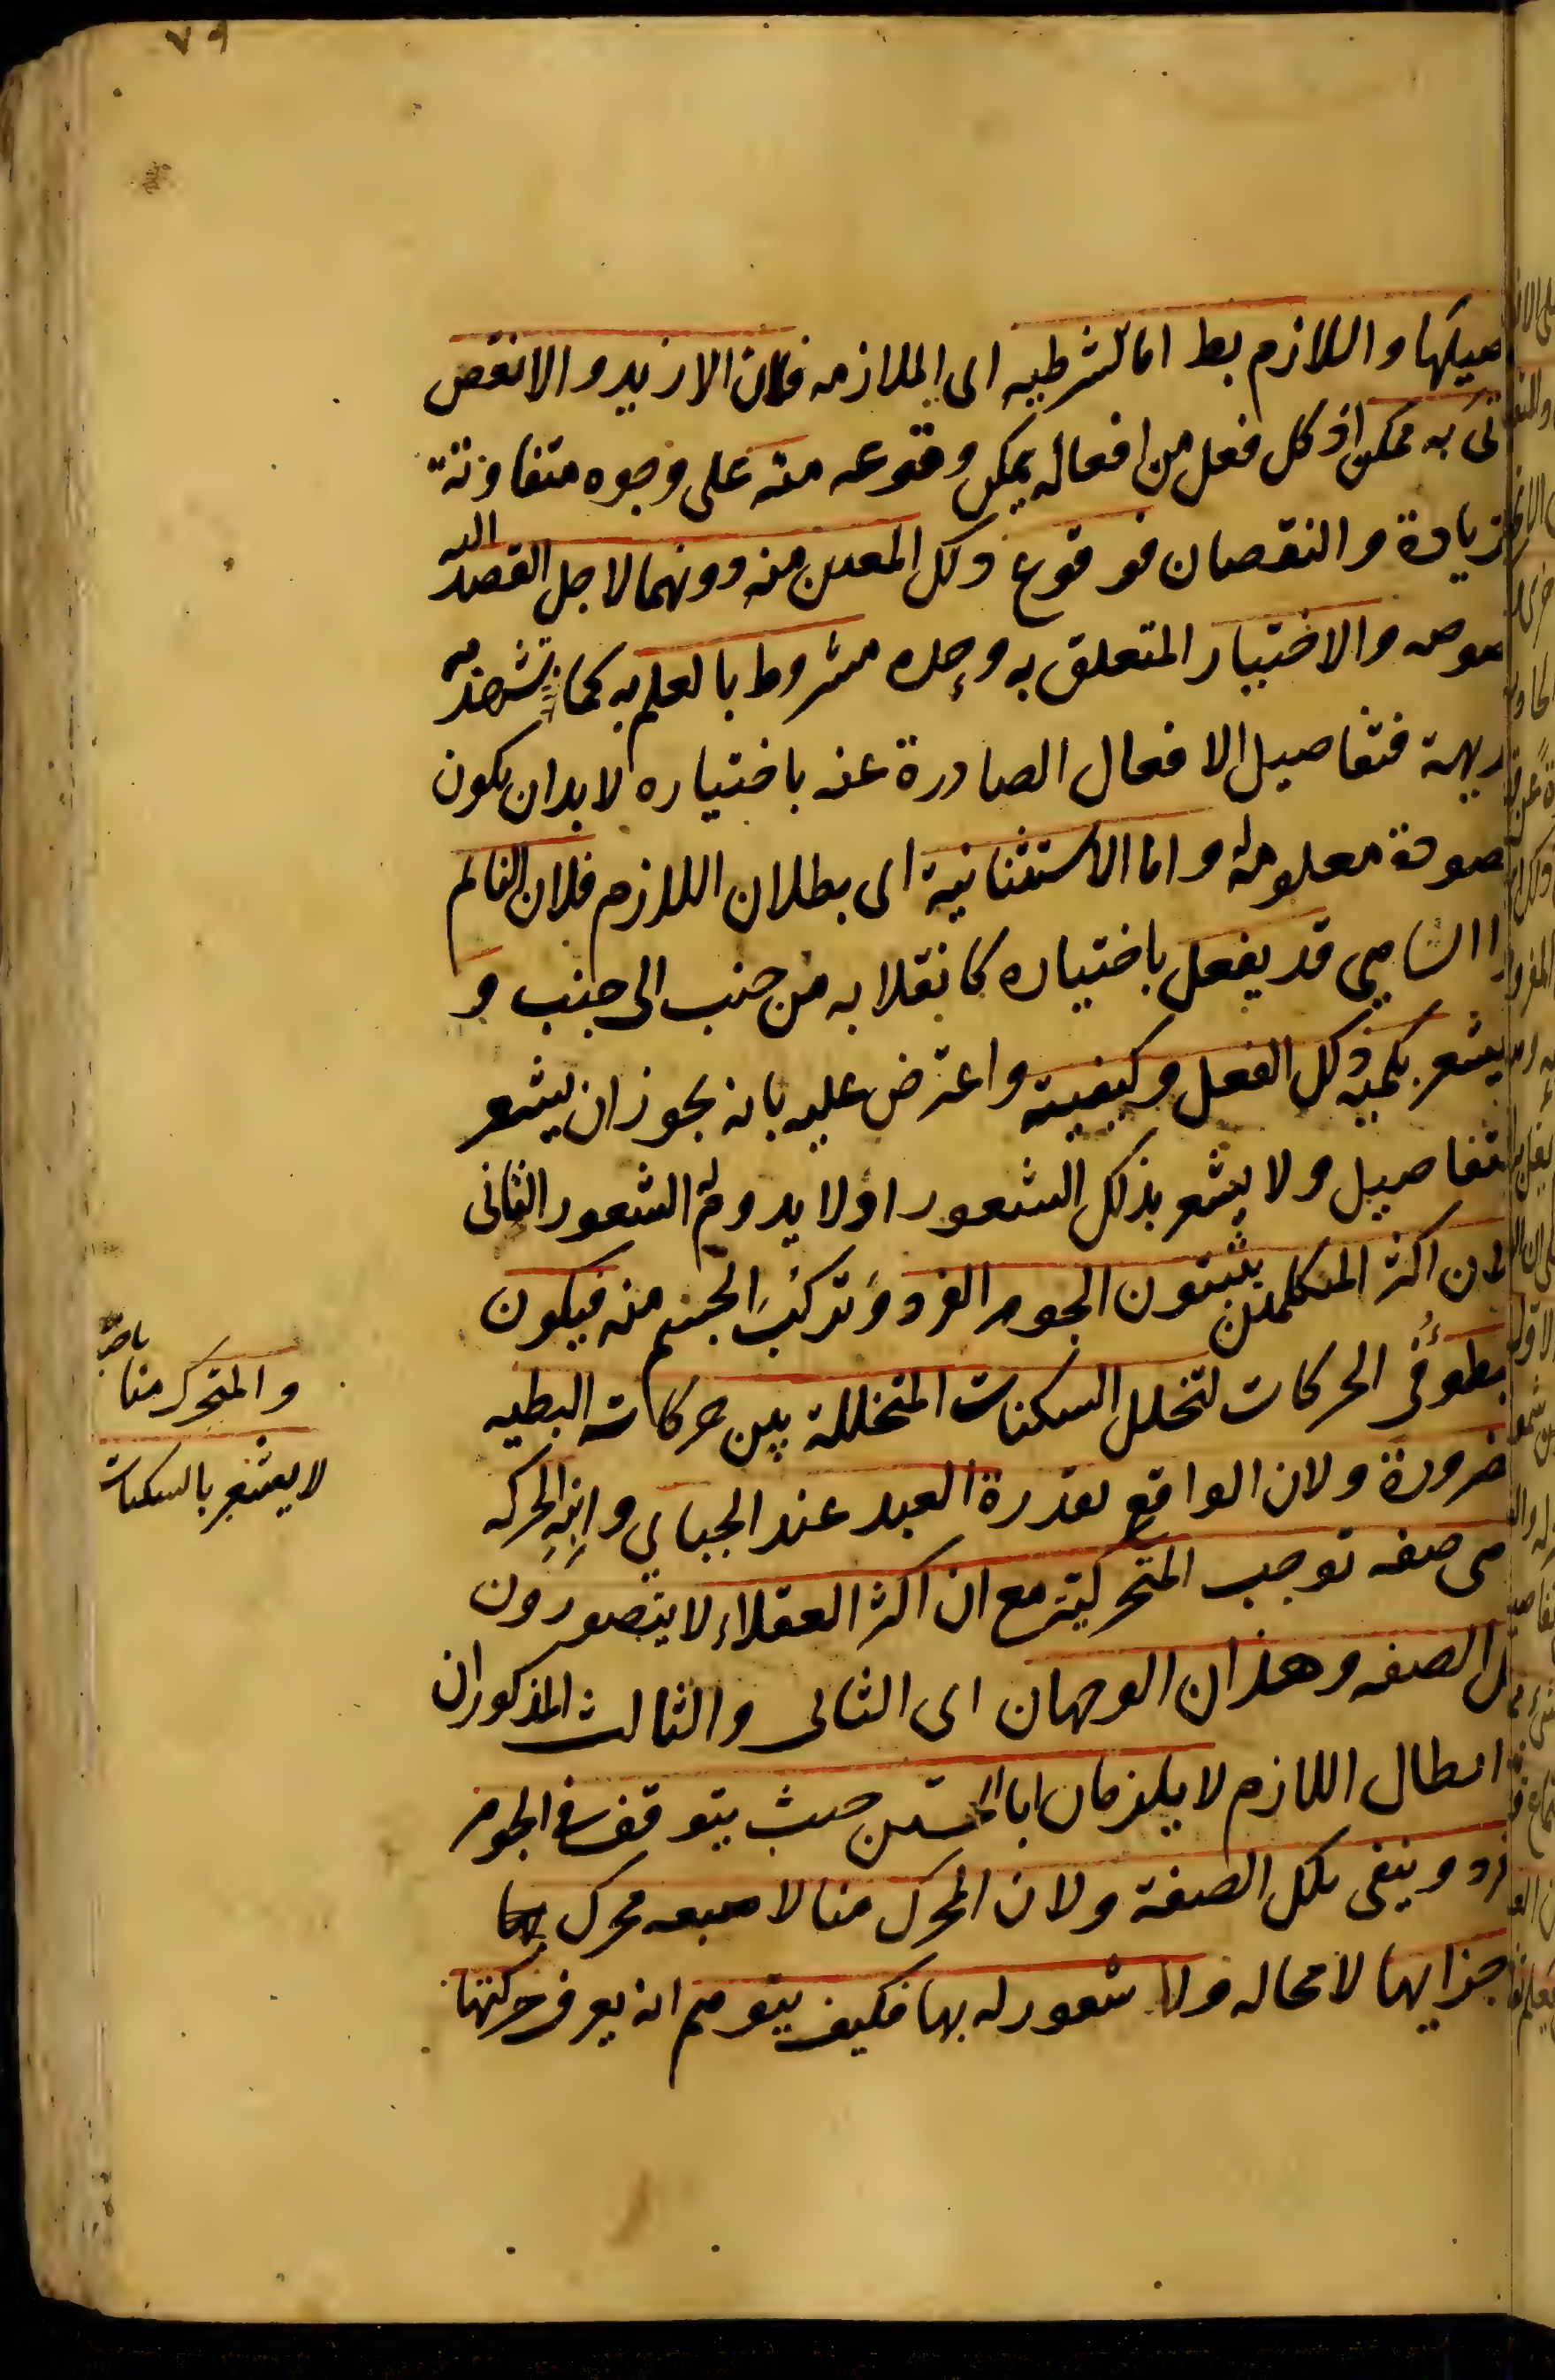 ٧٩
صيلها واللازم بط اما الشرطيه اى الملازمه فلان الازيد والانقص
تى به ممكن اذ كل فعل من افعاله يمكن وقوعه منه على وجوه متفاوتة
لزيادة والنقصان فوقوع ذلك المعين منه دونهما لاجل القصد اليه
صوصه والاختيار المتعلق به وحده مشروط بالعلم به كما تشهد به
ديهة فتفاصيل الافعال الصادرة عنه باختياره لابد ان يكون
صودة معلومة واما الاستثنائية اى بطلان اللازم فلان النائم
ا الساهى قد يفعل باختياره كانقلابه من جنب الى جنب و
يشعر بكمية ذلك الفعل وكيفيته واعترض عليه بانه يجوز ان يشعر
لتفاصيل ولا يشعر بذلك الشعور اولا يدوم له الشعور الثانى
لان اكثر المتكلمين يثبتون الجوهر الفرد وتركب الجسم منه فيكون
بطؤ فى الحركات لتخلل السكنات المتخللة بين حركاته البطيه
والمتحرك منا باختيا
لا يشعر بالسكنات
ضرورة ولان الواقع بقدرة العبد عند الجبائي وابنه الحركه
هى صفه توجب المتحركية مع ان اكثر العقلاء لا يتصورون
لك الصفه وهذان الوجهان اى الثانى والثالث المذكوران
ابطال اللازم لا يلزمان ابا الحسين حيث يتوقف فى الجوهر
فرد وينفى تلك الصفة ولان المحرك منا لا صبعه محرك
جزايها لا محاله ولا شعور له بها فكيف يتوهم انه يعرف حركتها